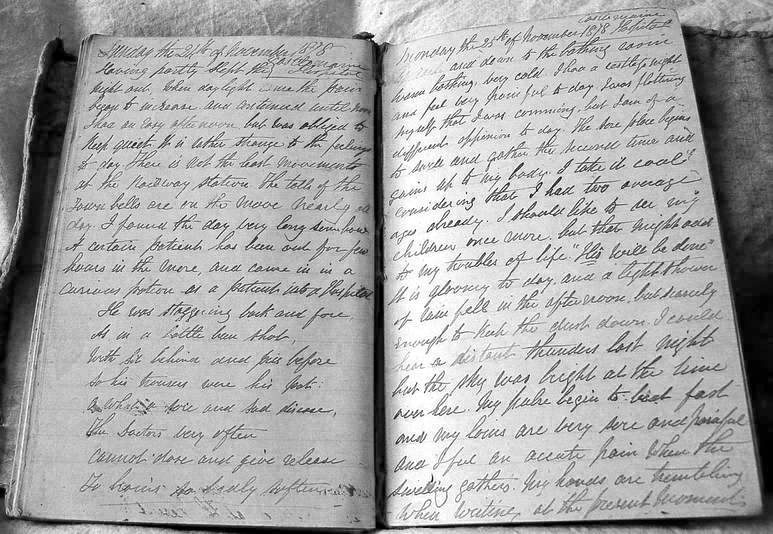 Sunday the 24th of November 1878
Castlemaine
Having partly slept the Hospital
night out, when daylight came the pain
began to increase and continued until noon
I has an easy afternoon but was obliged to
Keep quiet. It is rather strange to the feelings
to day. There is not the least movements
at the Railway station. The tolls of the
Town bells are on the move nearly all
day. I found the day very long somehow
A certain patient has been out for few
hours in the more, and came in in a
curious potion as a patient into a Hospital
He was staggering back and fore
As in a battle been shot,
With his behind and his before
So his trousers were his
a what a sore and sad disease,
The Doctors very often
Cannot dose and give release
To brains so sadly soften
Castlemaine
Monday the 25th of November 1878 Hospital
and down to the bathing room
warm bathing, very cold. I had a restless night
and feel very painful to day. I was flattering
myself that I was comming, but I am of a
different oppinion to day. The sore place begins
to swell and gather the second time and
gains up to my body. I take it cool
considering that I had two average
ages already. I should like to see my
children once more, but that might add
to my troubles of life. "His will be done"
It is gloomy to day, and a light shower
of rain fell in the afternoon, but scarcely
enough to keep the dust down. I could
hear a distant thunders last night
but the sky was bright at the time
over here. My pulse begin to beat fast
and my loins are very sore and painful
and I feel an accute pain when the
swelling gathers. My hands are trembling
when writing at the present moment.